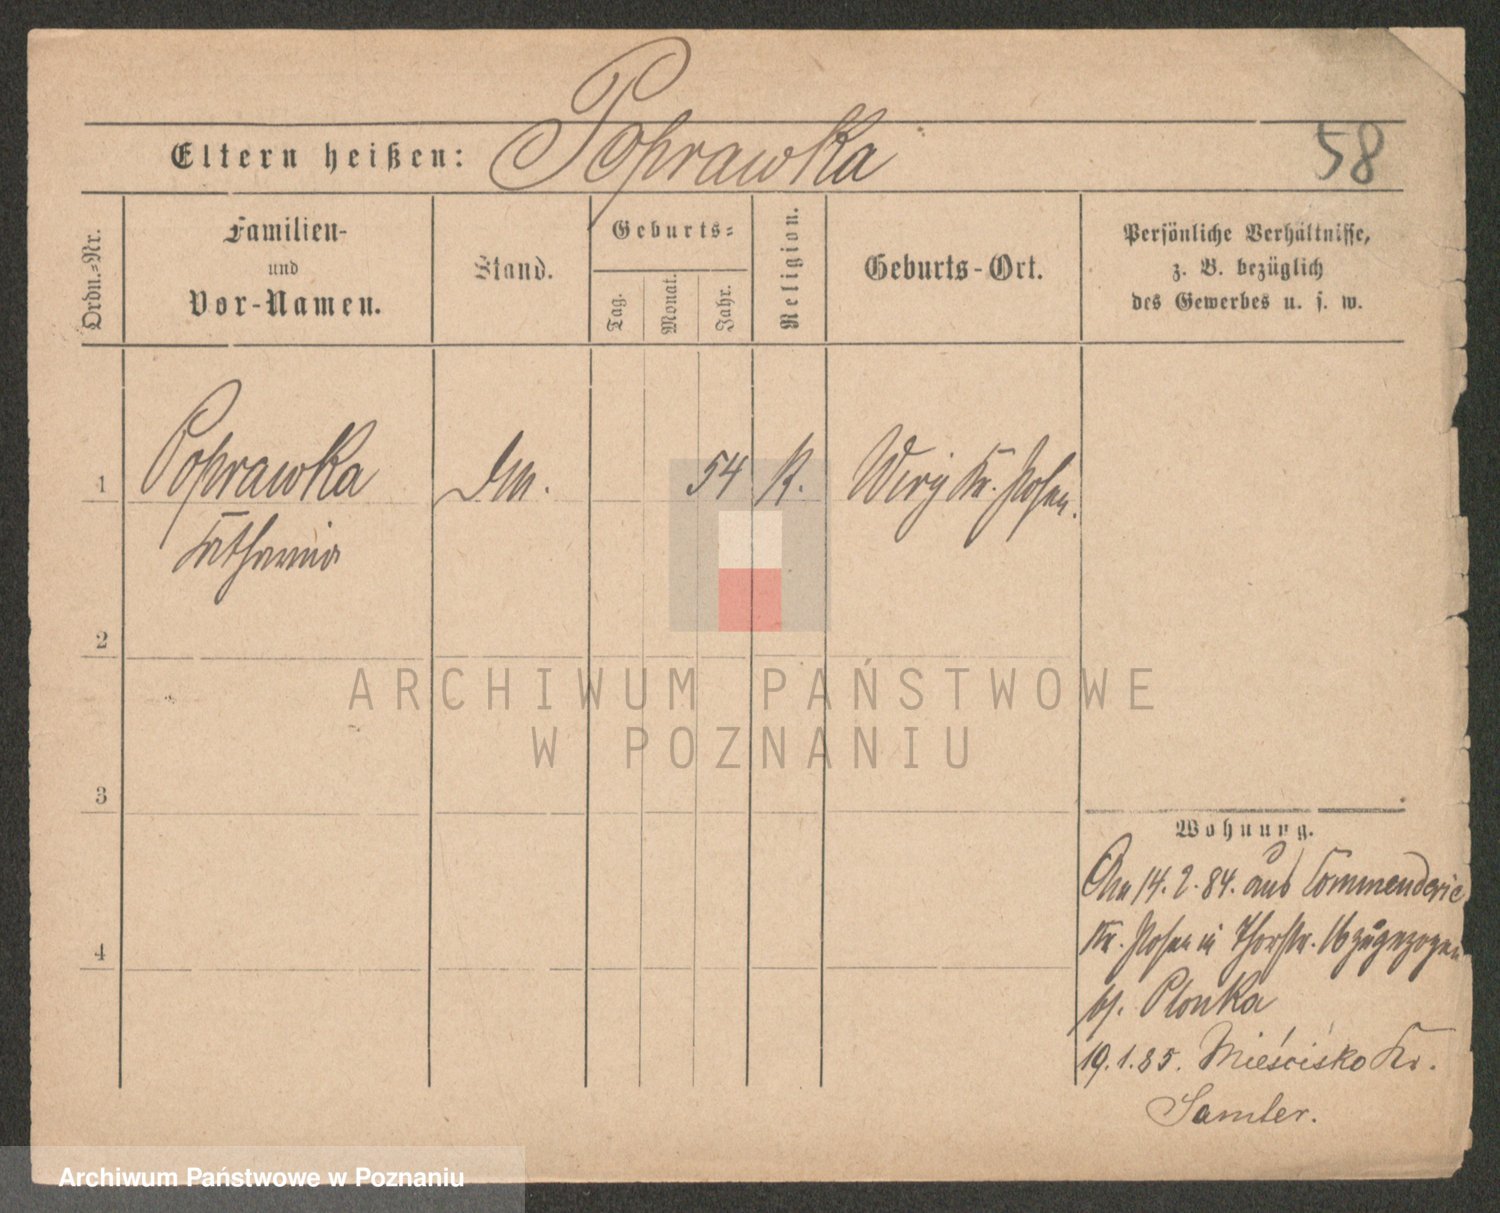 Eltern heißen: Poprawka
58
Ordn.-Nr.
Familien-
und
Vor-Namen.
Stand.
Geburts-
Tag.
Monat.
Jahr.
Religion.
Geburts-Ort.
Persönliche Verhältnisse,
z. B. bezüglich
des Gewerbes u. s. w.
1 Poprawka 54 K. Wiry Kr. Posen.
Katharina
2
3
4
ARCHIWUM PAŃSTWOWE
W POZNANIU
Wohnung.
14.2.84. aus Commenderie
Kr. Posen in Thorstr. 16 zugezogen
bj. Plonka
19.1.85. Mieścisko Kr.
Samter.
Archiwum Państwowe w Poznaniu